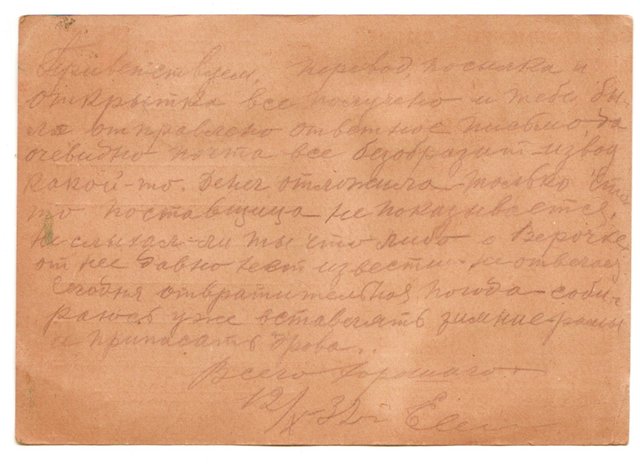 Приветствуем. Перевод, посылка и
открытка все получено и тебе бы-
ла отправлено ответное письмо, да
очевидно почта все безобразит
какой-то. Денег отложила только
то поставщица не показывается.
Не слыхал-ли ты что либо о Верочке
от нее давно нет известий не отвечает
Сегодня отвратительная погода соби-
раюсь уже вставлять зимние рамы
и припасать дрова.
Всего хорошего
12/X 32 г